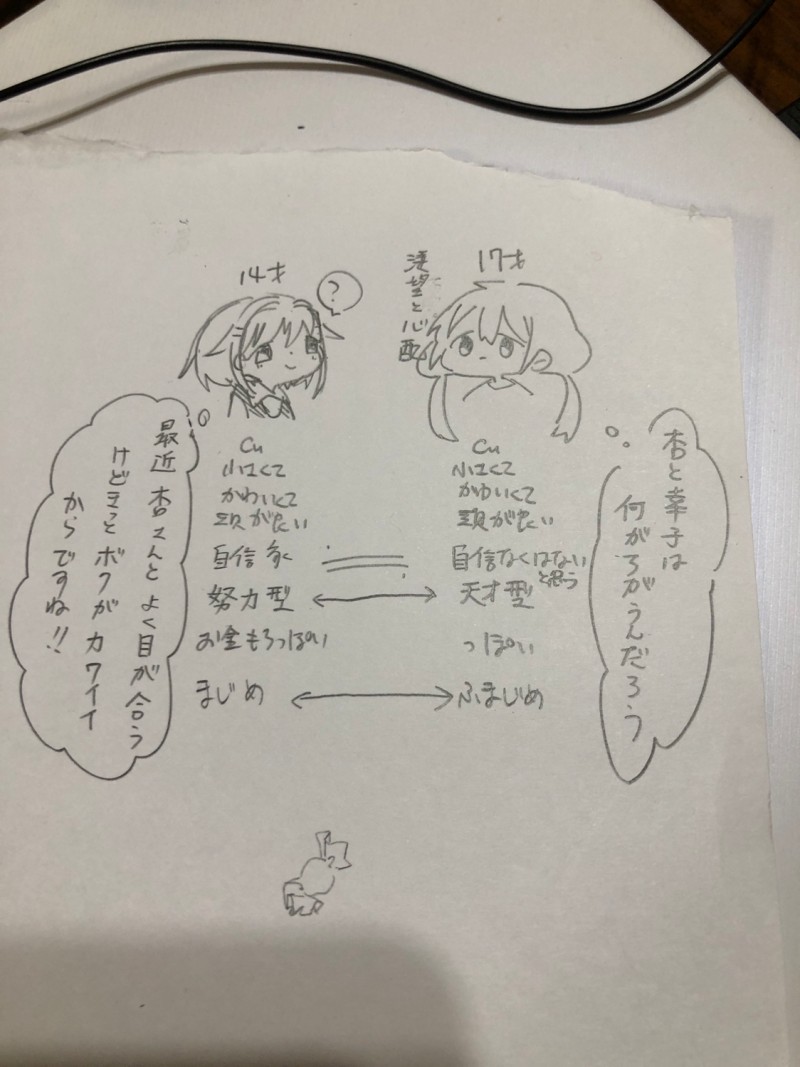 14才
?
17才
羨望と心配
最近 杏さんと よく目が合う
けどきっと ボクが カワイイ
からですね!!
Cu
小さくて
かわいくて
頭が良い
自信家
努力型
お金もちっぽい
まじめ
Cu
小さくて
かわいくて
頭が良い
自信なくはない
と思う
天才型
っぽい
ふまじめ
杏と幸子は
何がちがうんだろう